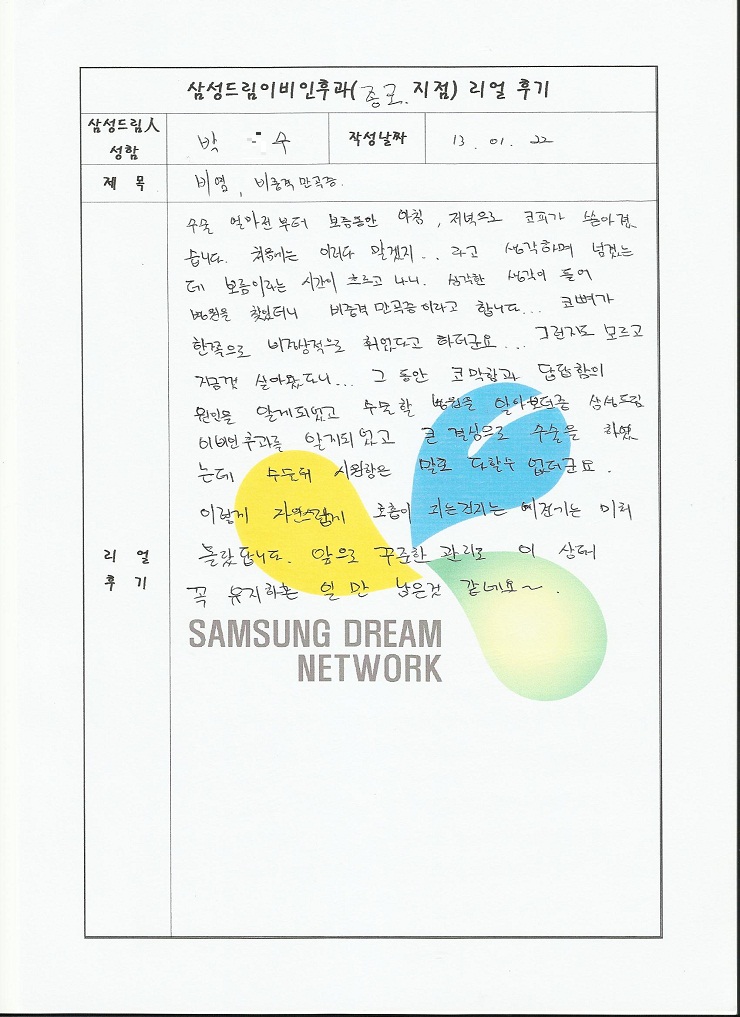 삼성드림이비인후과(종로 지점) 리얼 후기
삼성드림人
성함
박 수
작성날짜
13. 01. 22
제 목
비염, 비중격만곡증.
수술 얼마전부터 보름동안 아침, 저녁으로 코피가 쏟아졌
습니다. 처음에는 이러다 말겠지.. 라고 생각하며 넘겼는
데 보름이라는 시간이 흐르고 나니. 심각한 생각이 들어
병원을 찾았더니 비중격 만곡증이라고 합니다... 코뼈가
한쪽으로 비정상적으로 휘었다고 하더군요... 그런지도 모르고
지금껏 살아왔다니... 그 동안 코막힘과 답답함의
원인을 알게되었고 수술할 병원을 알아보던중 삼성드림
이비인후과를 알게되었고 큰 결심으로 수술을 하였
는데 수술뒤 시원함은 말로 다할수 없더군요.
이렇게 자연스럽게 호흡이 되는건지는 예전에는 미처
몰랐답니다. 앞으로 꾸준한 관리로 이 상태
꼭 유지하는 일 만 남은것 같네요~.
리 얼
후 기
SAMSUNG DREAM
NETWORK